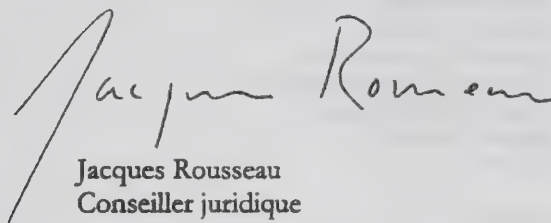 Jacques Rousseau
Jacques Rousseau
Conseiller juridique